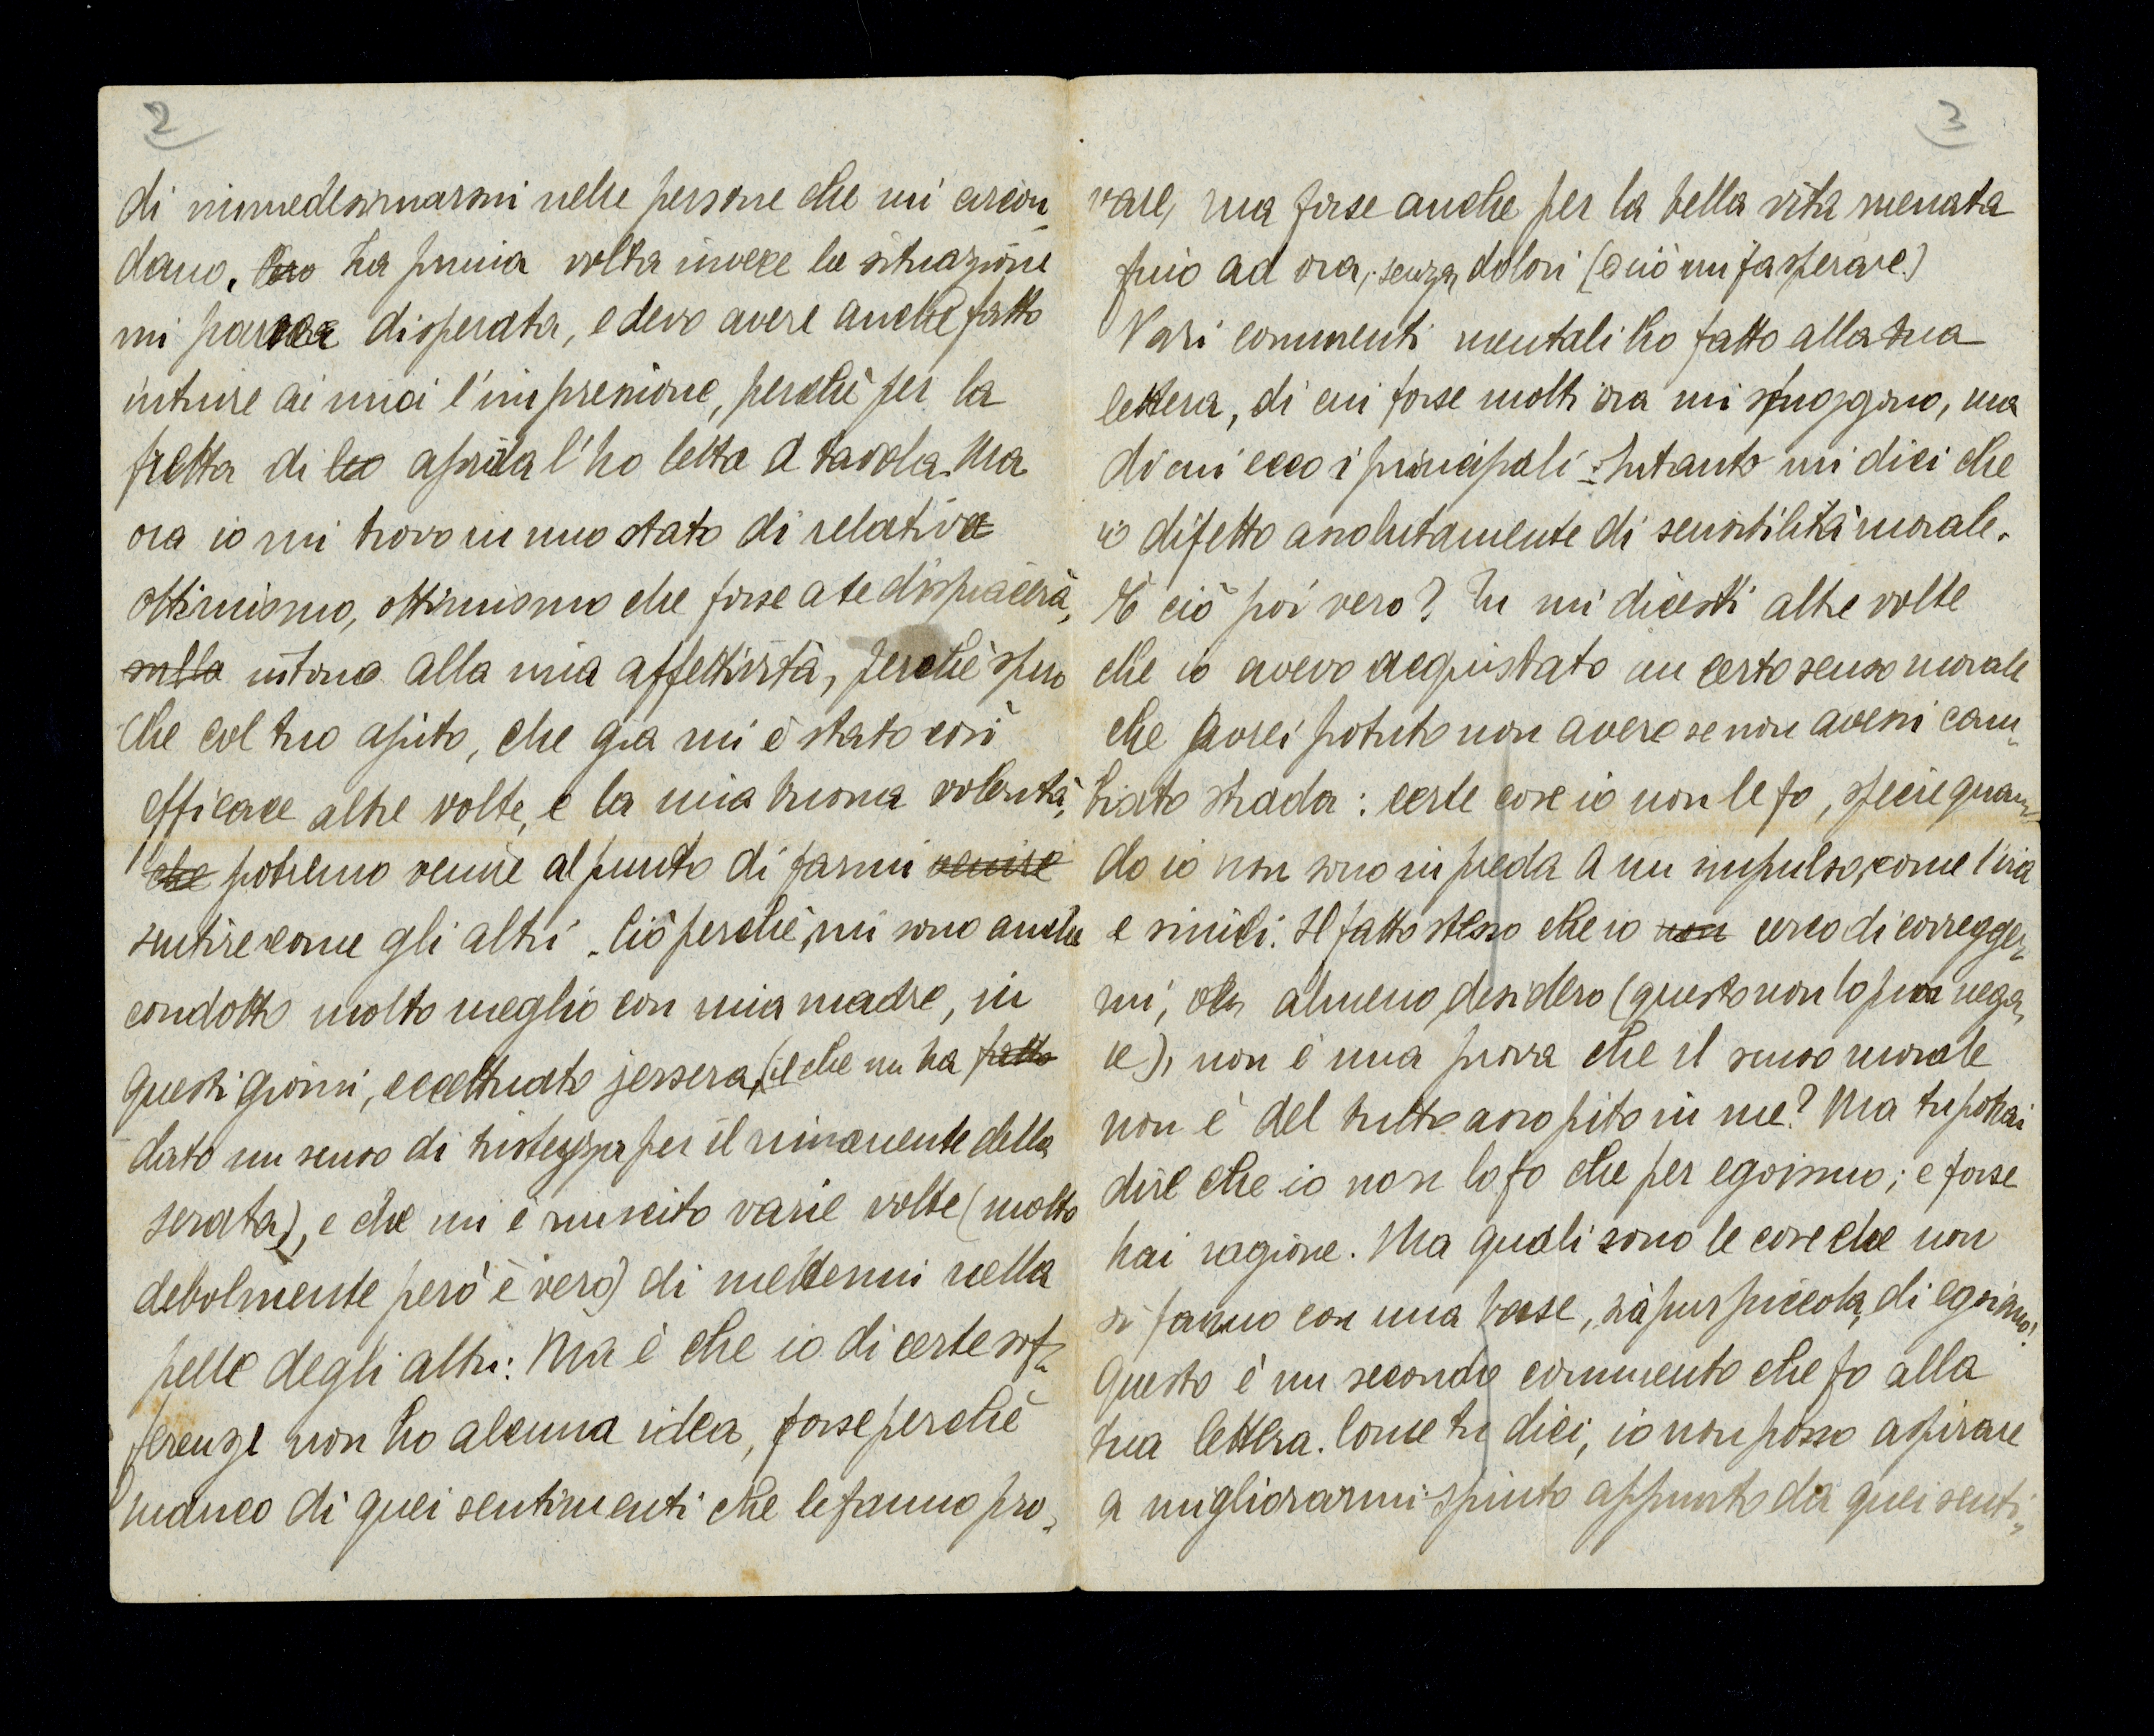 2
di immedesimarmi nelle persone che mi circon-
dano. La prima volta invece la situazione
mi parea disperata, e devo avere anche fatto
intuire ai miei l'impressione, perchè per la
fretta di aprirla l'ho letta a tavola. Ma
ora io mi trovo in uno stato di relativo
ottimismo, ottimismo che forse a te dispiacerà,
sulla intorno alla mia affettività, perchè spero
che col tuo ajuto, che già mi è stato così
efficace altre volte, e la mia buona volontà,
che potremo venire al punto di farmi venire
sentire come gli altri. Ciò perchè, mi sono anche
condotto molto meglio con mia madre, in
questi giorni, eccettuato jersera, (il che mi ha fatto
dato un senso di tristezza per il rimanente della
serata), e che mi è riuscito varie volte (molto
debolmente però è vero) di mettermi nella
pelle degli altri: Ma è che io di certe sof-
ferenze non ho alcuna idea, forse perchè
manco di quei sentimenti che le fanno pro-
3
vare, ma forse anche per la bella vita menata
fino ad ora, senza dolori (e ciò mi fa sperare.)
Vari commenti mentali ho fatto alla tua
lettera, di cui forse molti ora mi sfuggono, ma
di cui ecco i principali: Intanto mi dici che
io difetto assolutamente di sensibilità morale.
È ciò poi vero? Tu mi dicesti altre volte
che io avevo acquistato un certo senso morale
che avrei potuto non avere se non avessi cam-
biato strada: certe cose io non le fo, specie quan-
do io non sono in preda a un impulso, come l'ira
e simili. Il fatto stesso che io non cerco di corregger-
mi, o almeno desidero (questo non lo puoi nega-
re), non è una prova che il senso morale
non è del tutto assopito in me? Ma tu potrai
dire che io non lo fo che per egoismo; e forse
hai ragione. Ma quali sono le cose che non
si fanno con una base, sia pur piccola, di egoismo?
Questo è un secondo commento che fo alla
tua lettera. Come tu dici, io non posso aspirare
a migliorarmi spinto appunto da quei senti-